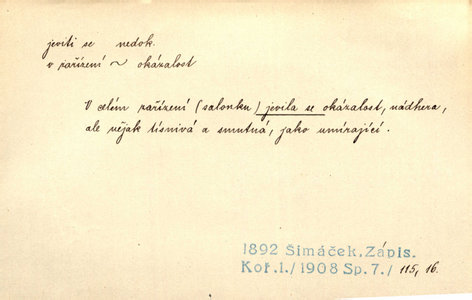 jeviti se nedok.
v zařízení ~ okázalost
V celém zařízení (salonku) jevila se okázalost, nádhera,
ale nějak tísnivá a smutná, jako umírající.
1892 Šimáček, Zápis.
Koř. 1./1908 Sp. 7./ 115, 16.